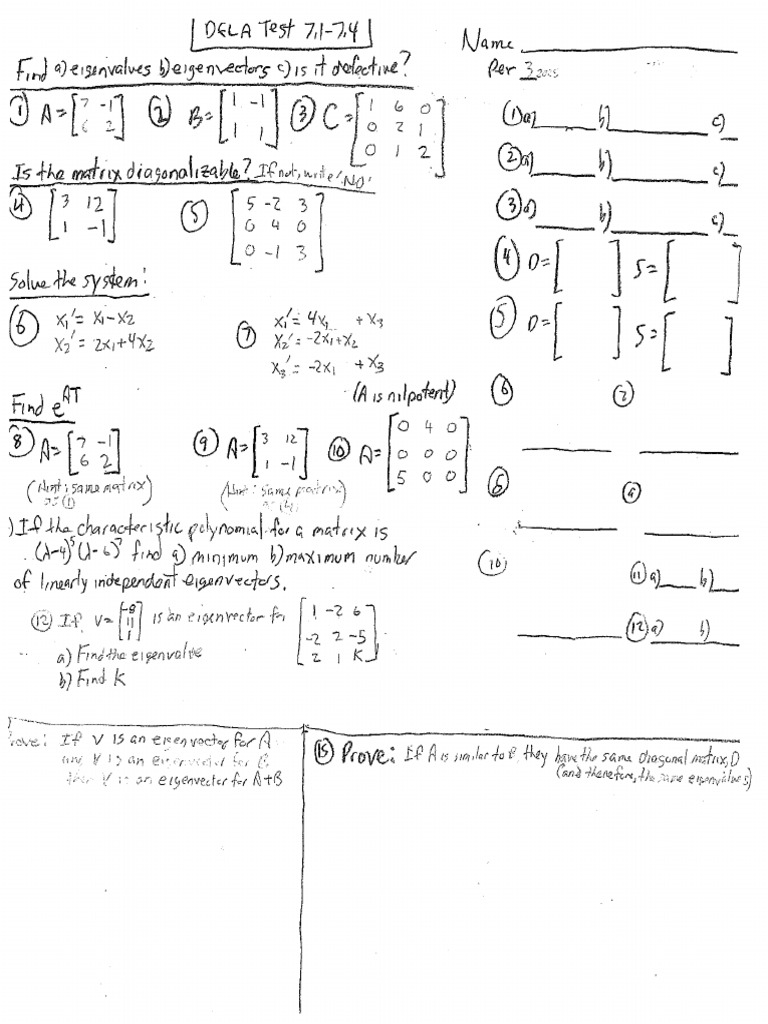 DELA Test 7.1-7.4
Name
Per 3 2025
Find a) eigenvalues b) eigenvectors c) is it defective?
① A = [7 -1
6 2]
② B = [1 -1
1 1]
③ C = [1 6 0
0 2 1
0 1 2]
① a) b) c)
② a) b) c)
③ a) b) c)
Is the matrix diagonalizable? If not, write "NO"
④ [3 12
1 -1]
⑤ [5 -2 3
0 4 0
0 -1 3]
④ D = [ ] S = [ ]
⑤ D = [ ] S = [ ]
Solve the system:
⑥ x₁' = x₁ - x₂
x₂' = 2x₁ + 4x₂
⑦ x₁' = 4x₁ + x₃
x₂' = -2x₁ + x₂
x₃' = -2x₁ + x₃
⑥ ⑦
Find e^AT
(A is nilpotent)
⑧ A = [7 -1
6 2]
(Hint: same matrix
as (1)
⑨ A = [3 12
1 -1]
(Hint: same matrix
as (4)
⑩ A = [0 4 0
0 0 0
5 0 0]
⑧ ⑨
) If the characteristic polynomial for a matrix is
(λ-4)⁵(λ-6)⁷ find a) minimum b) maximum number
of linearly independent eigenvectors.
⑩
⑪ a) b)
⑫ a) b)
⑫ If v = [-8
11
1] is an eigenvector for [1 -2 6
-2 2 -5
2 1 K]
a) Find the eigenvalue
b) Find K
rove: If v is an eigenvector for A
and v is an eigenvector for B,
then v is an eigenvector for A+B
⑮ Prove: If A is similar to B, they have the same diagonal matrix, D
(and therefore, the same eigenvalues)